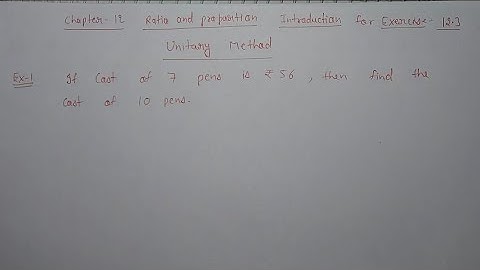 Chapter-12 Ratio and proposition Introduction for Exercise-12.3
Unitary Method
Ex-1 If Cost of 7 pens is ₹56, then find the
cost of 10 pens.